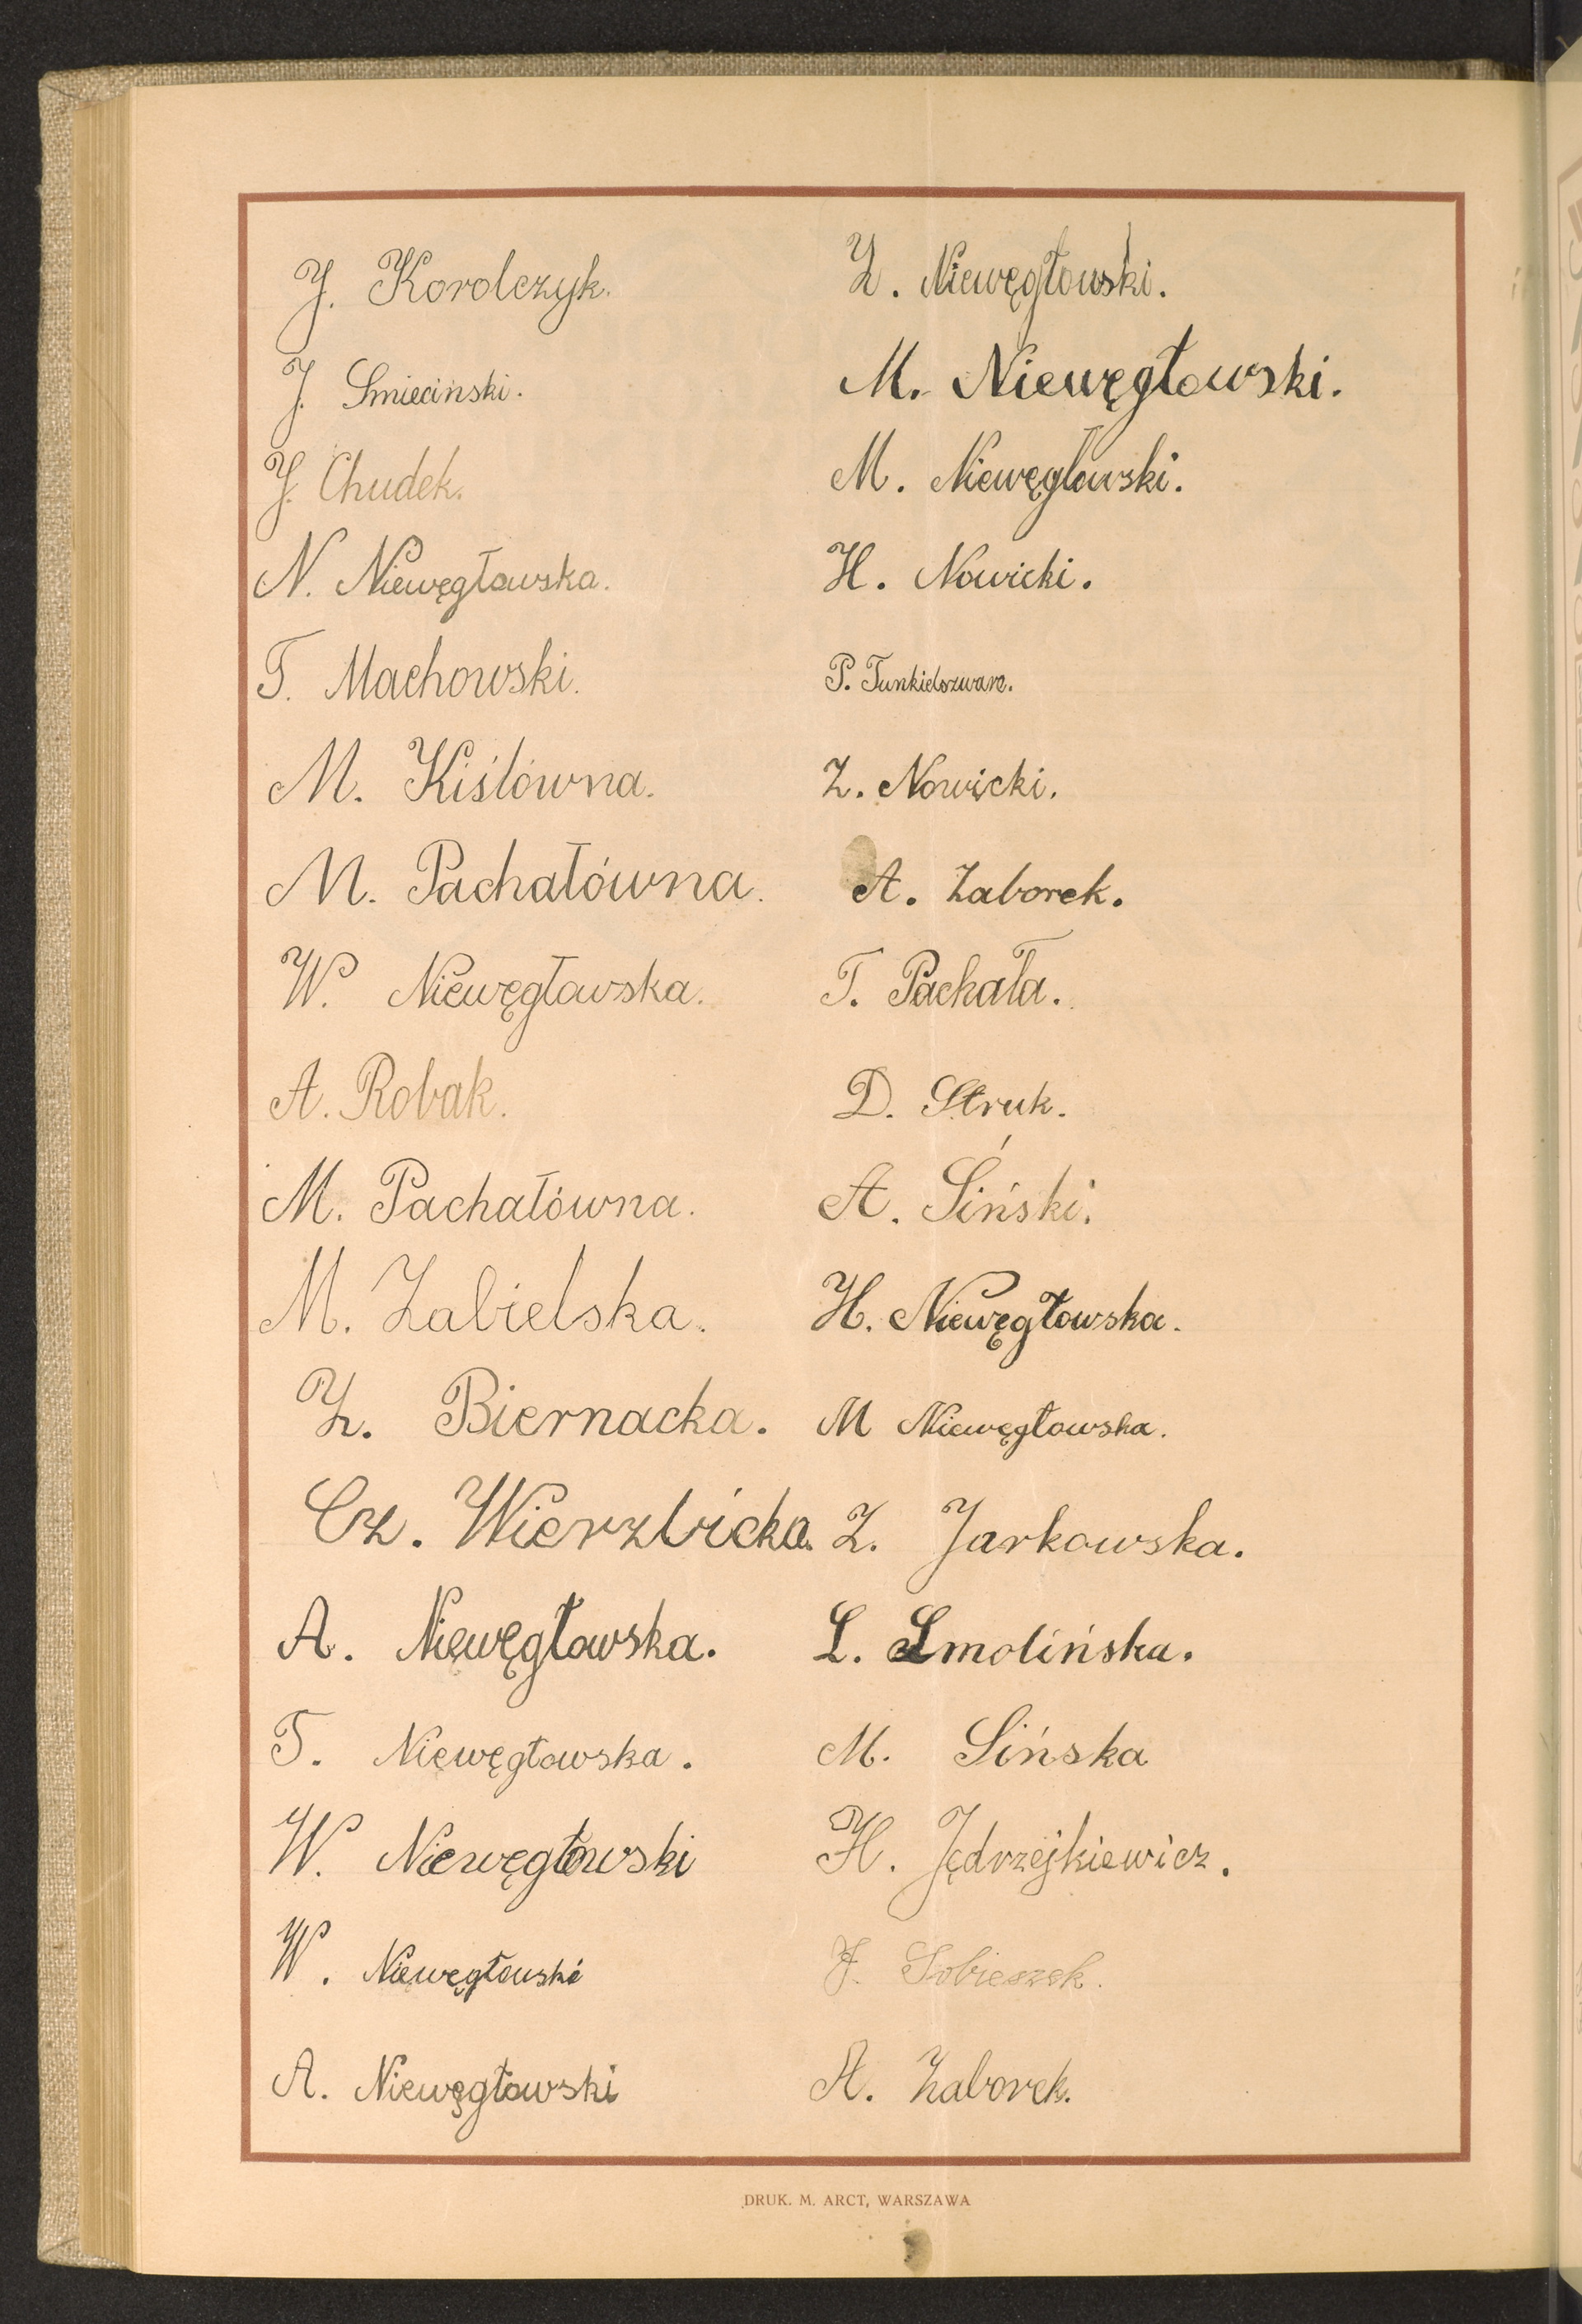 J. Korolczyk.
J. Smieciński.
J. Chudek.
N. Niewęgłowska.
T. Machowski.
M. Kiślówna.
M. Pachałówna.
W. Niewęgłowska.
A. Robak.
M. Pachałówna.
M. Zabielska.
Z. Biernacka.
Cz. Wierzbicka.
A. Niewęgłowska.
T. Niewęgłowska.
W. Niewęgłowski
W. Niewęgłowski
A. Niewęgłowski
Z. Niewęgłowski.
M. Niewęgłowski.
M. Niewęglowski.
H. Nowicki.
P. Tunkielszwarc.
Z. Nowicki.
A. Zaborek.
T. Pachała.
D. Struk.
A. Śiński.
H. Niewęgłowska.
M Niewęgłowska.
Z. Jarkowska.
L. Smolińska.
M. Sińska
H. Jędrzejkiewicz.
J. Sobieszek.
A. Zaborek.
DRUK. M. ARCT, WARSZAWA